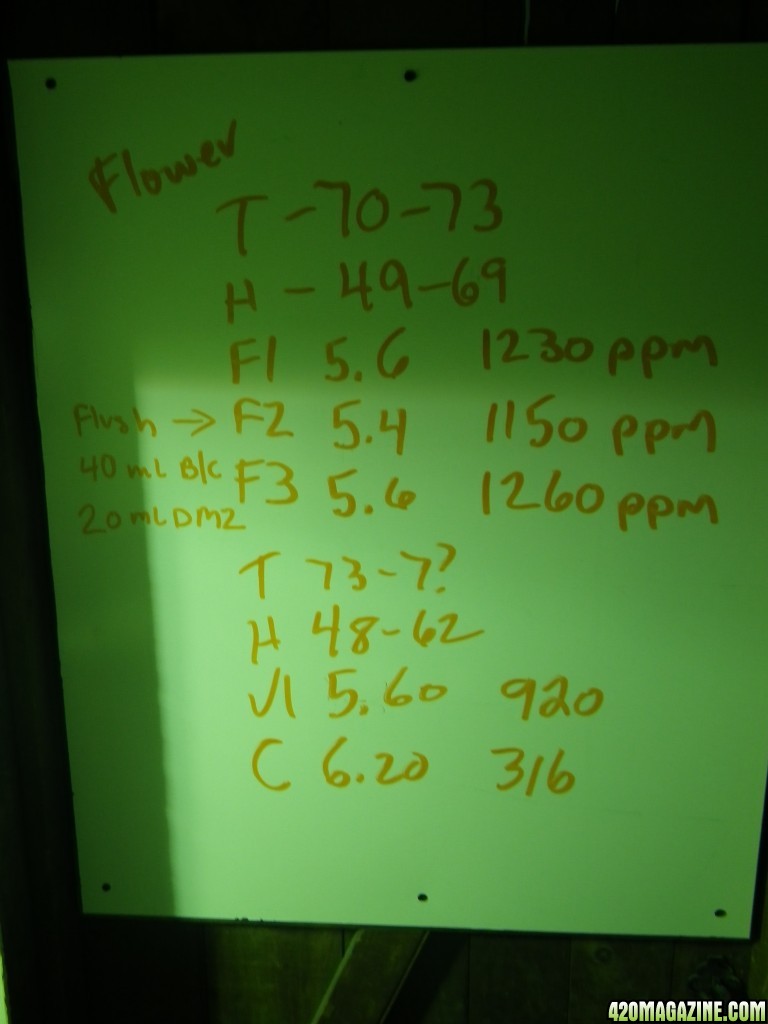 Flower
T - 70 - 73
H - 49 - 69
F1 5.6 1230 ppm
Flush → F2 5.4 1150 ppm
40 mL B/C F3 5.6 1260 ppm
20 mL DM2
T 73 - 7?
H 48 - 62
V1 5.60 920
C 6.20 316
420MAGAZINE.COM